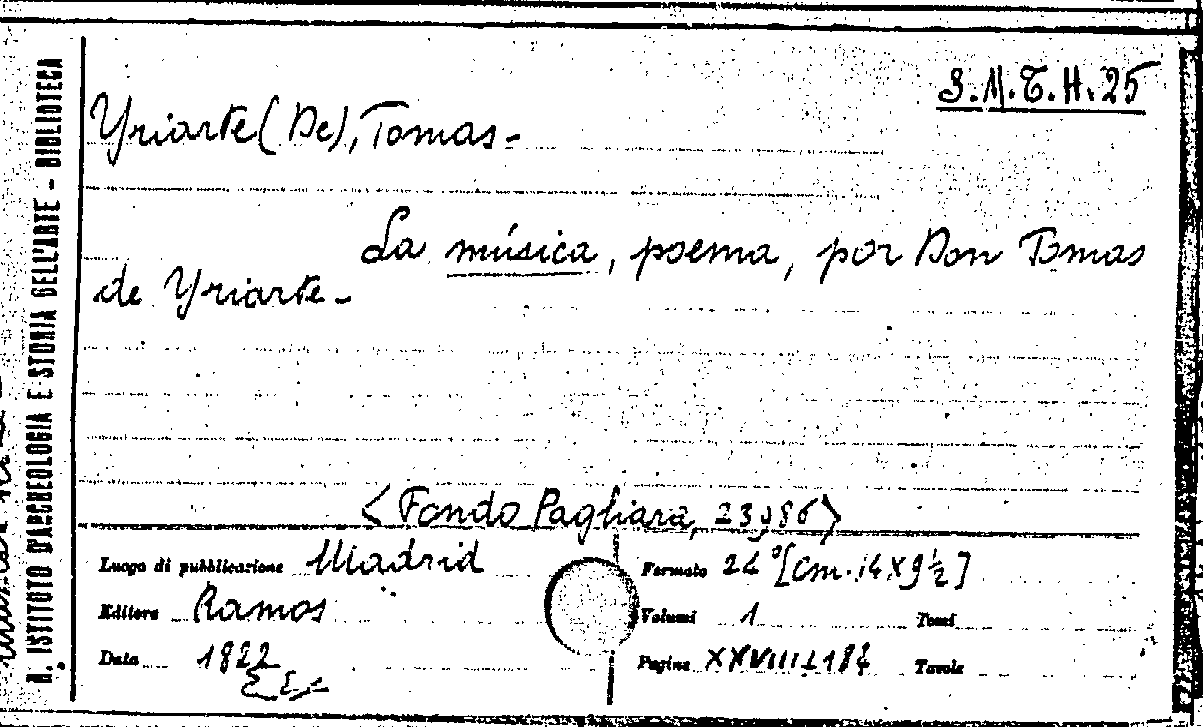 S.M.T.H.25
Yriarte (De), Tomas-
La música, poema, por Don Tomas
de Yriarte-
<Fondo Pagliara, 23986>
Luogo di pubblicazione Madrid
Editore Ramos
Data 1822
Formato 24° [cm. 14 x 9 ½]
Volumi 1 Tomi
Pagine XXVIII-184 Tavole
R. ISTITUTO D'ARCHEOLOGIA E STORIA DELL'ARTE - BIBLIOTECA